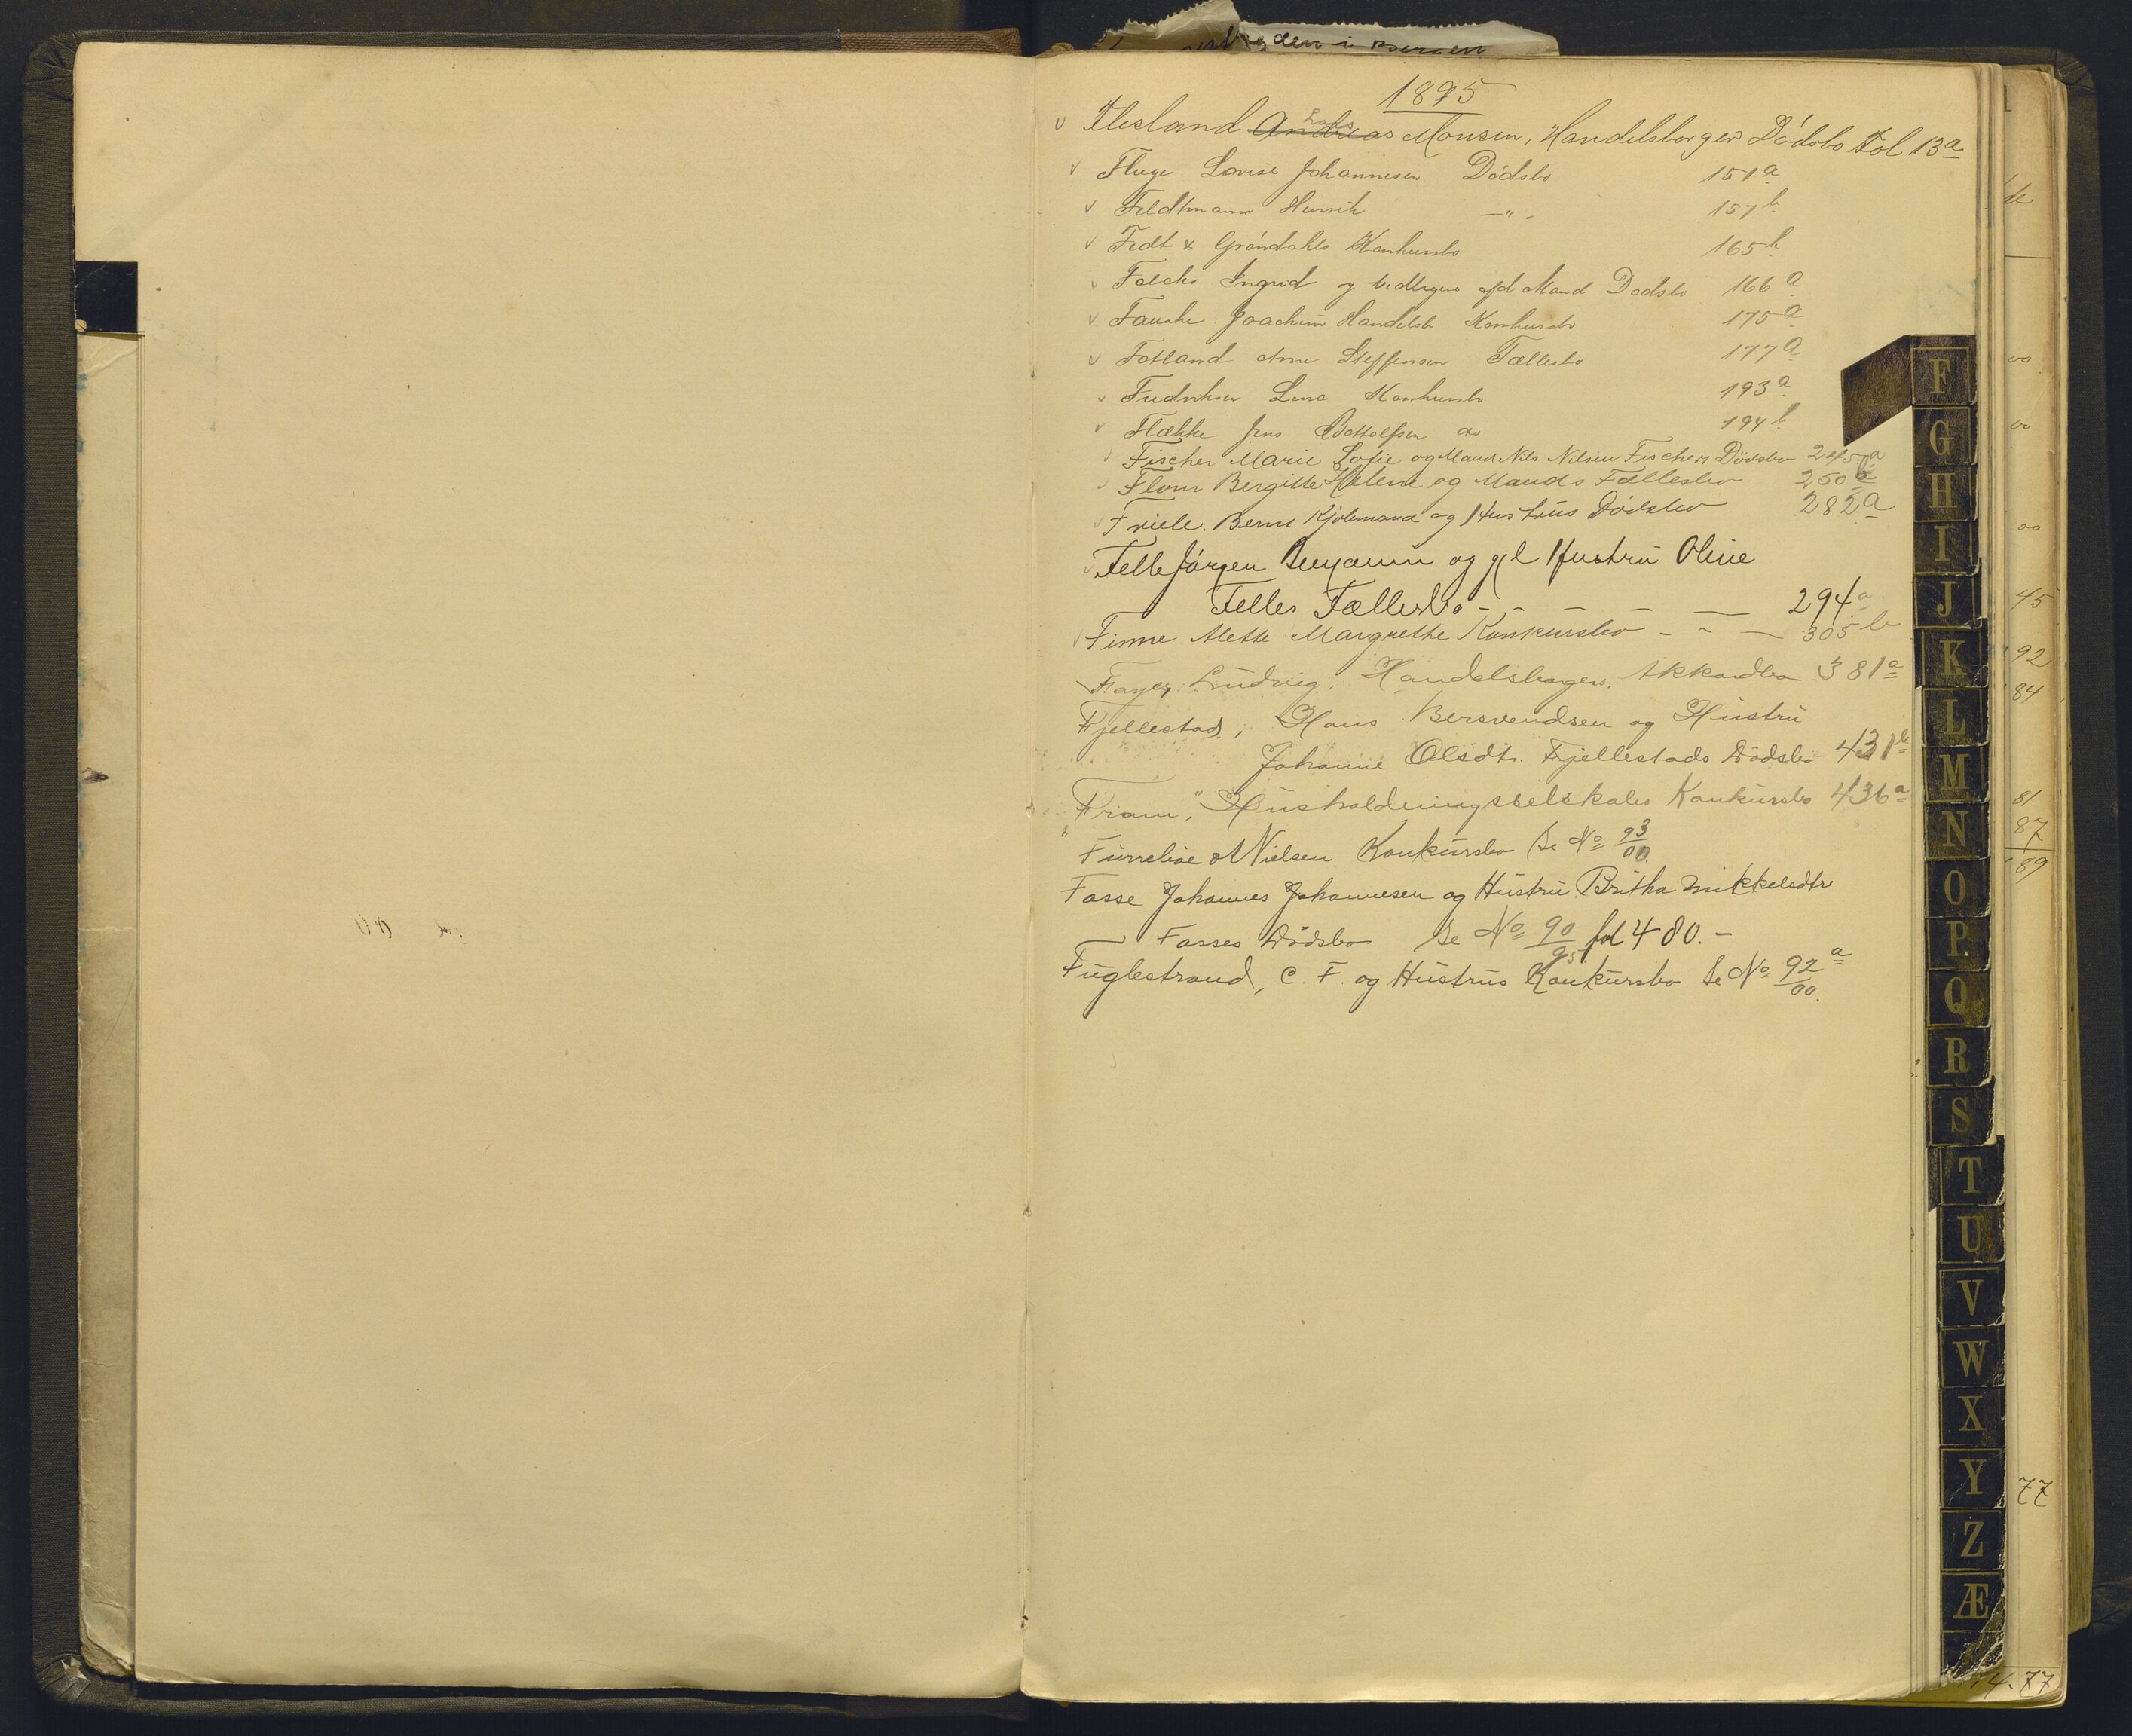 1895
Flesland Andreas Lars Monsen, Handelsborger Dødsbo Fol 13a
Fluge Lovise Johannesen Dødsbo 151a
Feldtmann Henrik —"— 157b
Fedt & Grøndahls Konkursbo 165b
Falcks Ingrid og tidligere afd Mand Dødsbo 166a
Fauske Joachim Handelsb Konkursbo 175a
Fotland Arne Steffensen Fællesbo 177a
Fredriksen Lena Konkursbo 193a
Flække Jens Bottolfsen do 194b
Fischer Marie Sofie og Mand Nils Nilsen Fischers Dødsbo 245a
Flom Bergitte Helene og Mands Fællesbo 250
Friele. Bernt Kjølmand og Hustrus Dødsbo 282a
Felle Jørgen Benjamin og gl Hustru Oline
Felles Fællesbo - - - - - 294a
Finne Mette Margrethe Konkursbo - - - 305b
Fayer Ludvig, Handelsborgers. Akkordbo 381a
Fjellestad, Hans Bersvendsen og Hustru
Johanne Olsdtr. Fjellestads Dødsbo 431b
"Fram", Husholdningsselskabs Konkursbo 436a
Furreboe & Nielsen Konkursbo Se No 93/00
Fosse Johannes Johannesen og Hustru Britha Mikkelsdtr
Fosses Dødsbo Se No 90/95 fol 480.-
Fuglestrand, C. F. og Hustrus Konkursbo Se No 92/00 a
F
G
H
I
J
K
L
M
N
O
P
Q
R
S
T
U
V
W
X
Y
Z
Æ
00
00
00
45
92
84
81
87
89
77
4.77